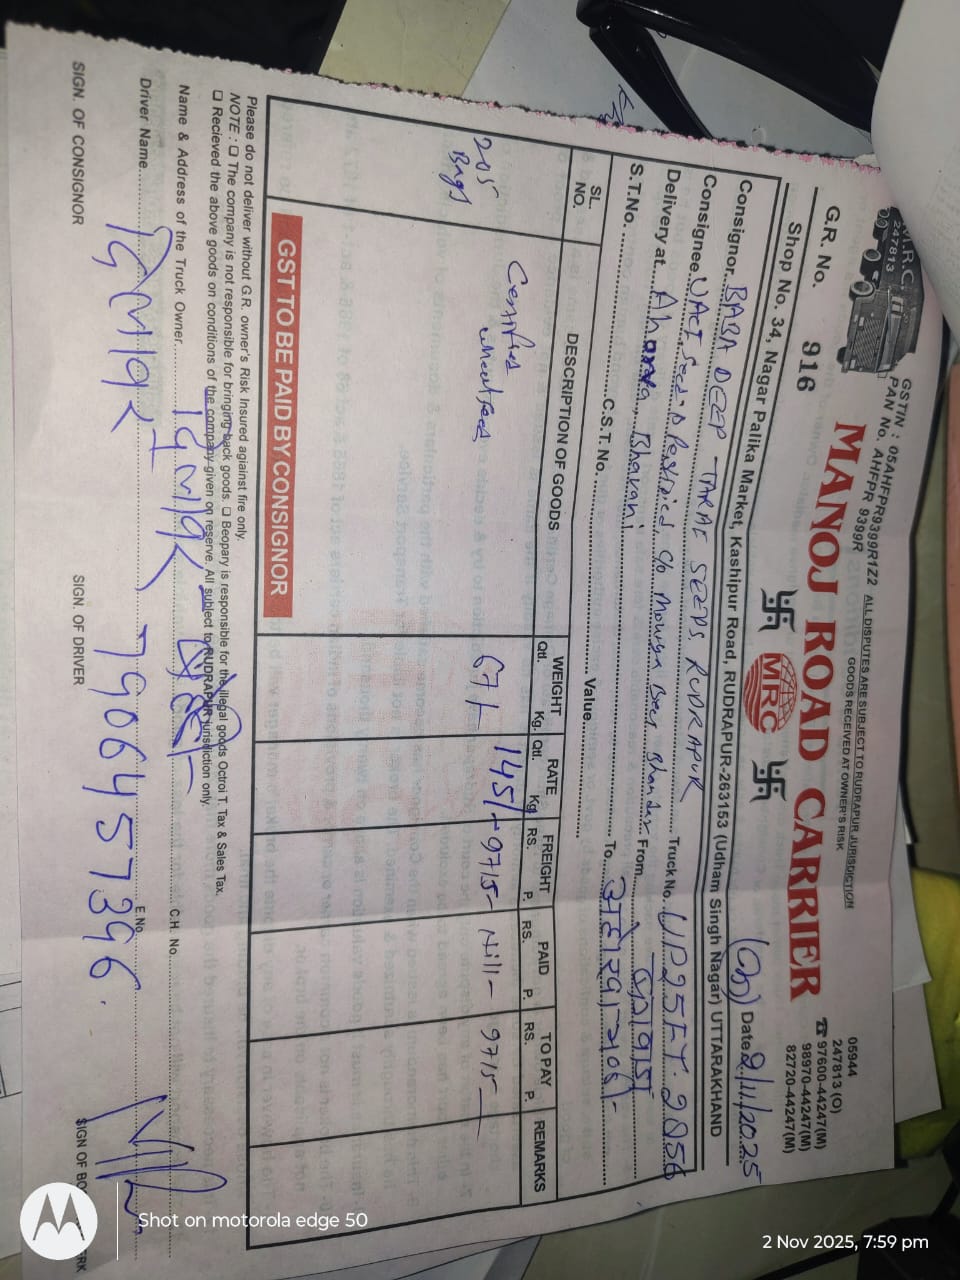 M.R.C.
247813
GSTIN : 05AHFPR9399R1Z2
PAN No. AHFPR 9399R
ALL DISPUTES ARE SUBJECT TO RUDRAPUR JURISDICTION
GOODS RECEIVED AT OWNER'S RISK
05944
247813 (O)
☎ 97600-44247(M)
98970-44247(M)
82720-44247(M)
MANOJ ROAD CARRIER
G.R. No. 916
MRC
Date 2/11/2025
Shop No. 34, Nagar Palika Market, Kashipur Road, RUDRAPUR-263153 (Udham Singh Nagar) UTTARAKHAND
Consignor BABA DEEP TARAI SEEDS, RUDRAPUR
Consignee Seed Truck No. UP25FT-2856
Delivery at Bhavani From
S.T.No. C.S.T. No. Value To
SL. NO. DESCRIPTION OF GOODS WEIGHT Qtl. Kg. RATE Qtl. Kg FREIGHT RS. P. PAID RS. P. TO PAY RS. P. REMARKS
205 Bags Certified wheat seed 67/- 145/- 9715- Nill- 9715-
GST TO BE PAID BY CONSIGNOR
Please do not deliver without G.R. owner's Risk Insured against fire only.
NOTE : ☐ The company is not responsible for bringing back goods. ☐ Beopary is responsible for the illegal goods Octroi T. Tax & Sales Tax.
☐ Recieved the above goods on conditions of the company given on reserve. All subject to RUDRAPUR jurisdiction only.
Name & Address of the Truck Owner C.H. No.
Driver Name 7906457396. E.No.
SIGN. OF CONSIGNOR SIGN. OF DRIVER
Shot on motorola edge 50
2 Nov 2025, 7:59 pm